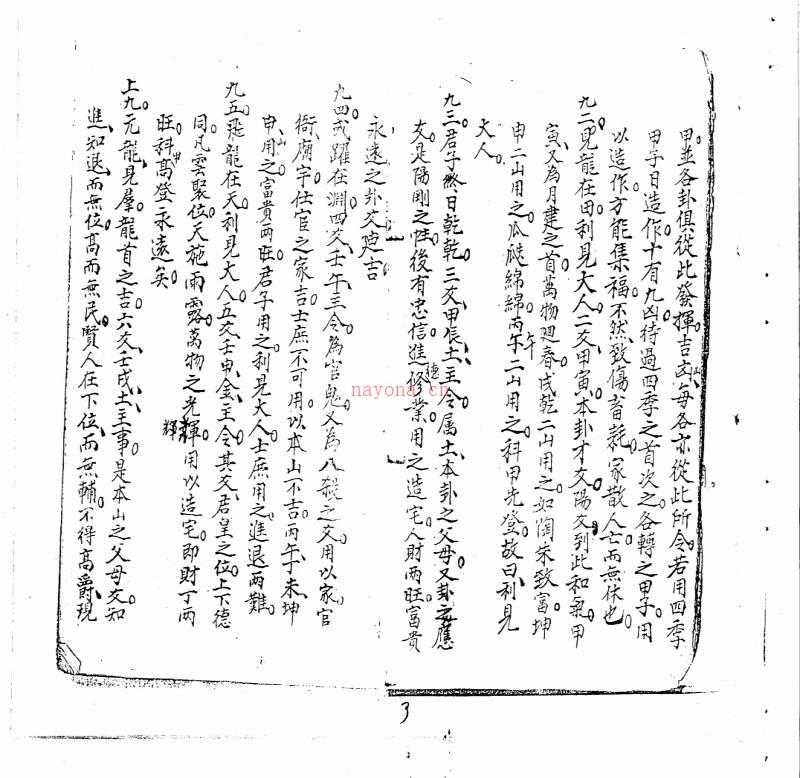 甲並各卦俱從此發揮吉凶每各亦從此所令若用四季
甲子日造作十有九凶待過四季之首次之各轉之甲子用
以造作方能集福不然致傷畜耗家散人亡而無休也
九二見龍在田利見大人二爻甲寅本卦才爻陽爻到此和氣甲
寅又為月建之首萬物廻春戌乾二山用之如陶朱致富坤
申二山用之瓜瓞綿綿丙午二山用之科甲先登故曰利見
大人
九三君子終日乾乾三爻甲辰土主令属土本卦之父母又卦之應
爻是陽剛之性後有忠信進德修業用之造宅人財兩旺富貴
永遠之卦爻更吉
九四或躍在淵四爻壬午三令為官鬼又為八殺之爻用以家官
衙廟宇仕宦之家吉士庶不可用以本山不吉丙午丁未坤
申山用之富貴兩旺君子用之利見大人士庶用之進退兩難
九五飛龍在天利見大人五爻壬申金主令其爻君皇之位上下德
同凡雲聚位天施雨露萬物之光輝用以造宅即財丁兩
輝
旺科甲高登永遠矣
上九亢龍見羣龍首之吉六爻壬戌土主事是本山之父母爻知
進知退而無位高而無民賢人在下位而無輔不得高爵現
nayona.cn
3